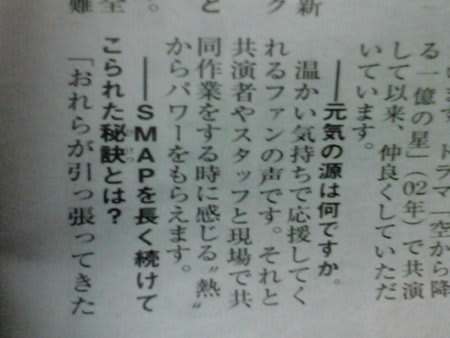 新
ク
と
。
全
難
います。ドラマ「空から降
る一億の星」（02年）で共演
して以来、仲良くしていただ
いています。
――元気の源は何ですか。
温かい気持ちで応援してく
れるファンの声です。それと
共演者やスタッフと現場で共
同作業をする時に感じる〝熱〟
からパワーをもらえます。
――SMAPを長く続けて
こられた秘訣とは？
「おれらが引っ張ってきた